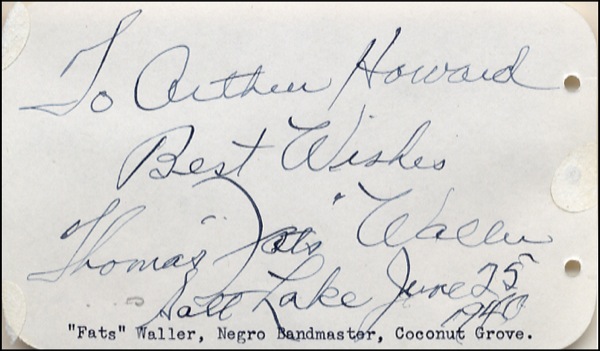 To Arthur Howard
Best Wishes
Thomas "Fats" Waller
Salt Lake June 25
1940
"Fats" Waller, Negro Bandmaster, Coconut Grove.